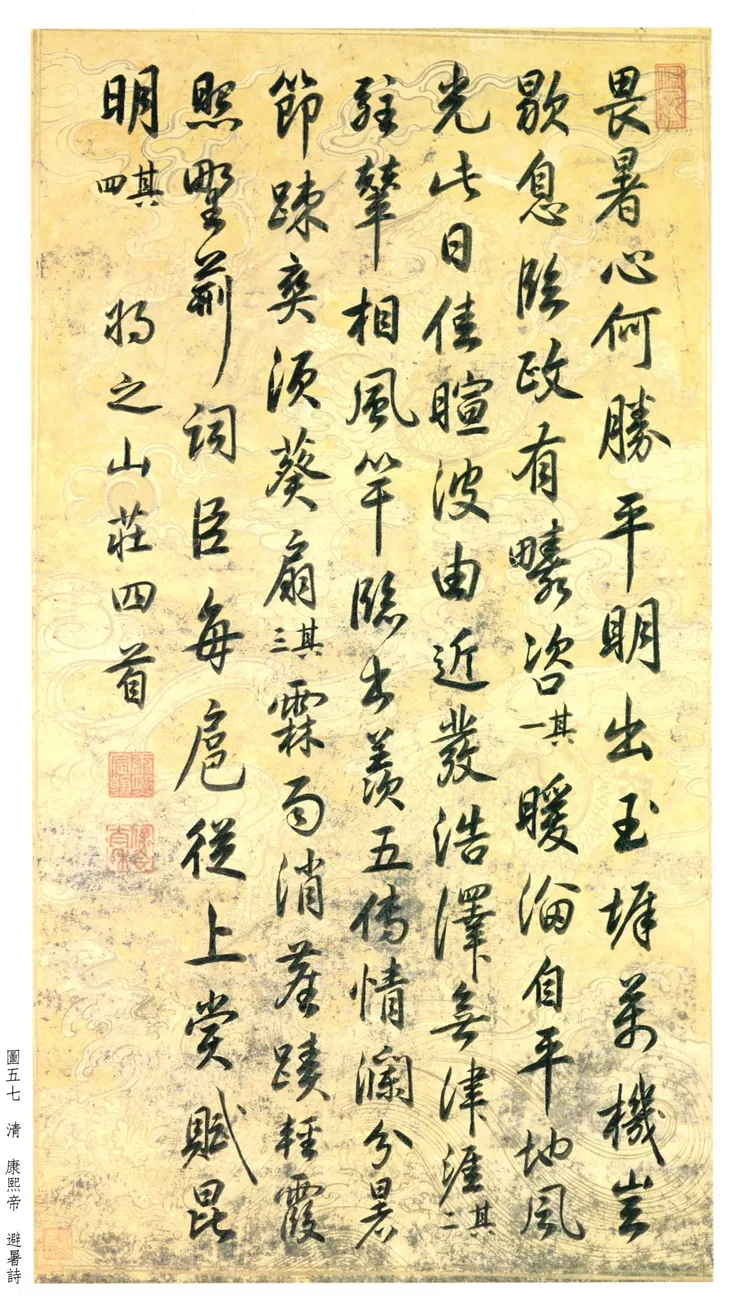 畏暑心何勝平明出玉墀萬機豈
歇息臨政有疇咨其一暖淪自平地風
光此日佳暄波由近發浩澤無津涯其二
駐輦相風竿臨羨五傳情瀾分暑
節踈爽須葵扇其三霖雨消塵蹟輕霞
照野荊詞臣每扈從上賞賦昆
明其四 將之山莊四首
康熙宸翰
保合太和
圖五七 清 康熙帝 避暑詩